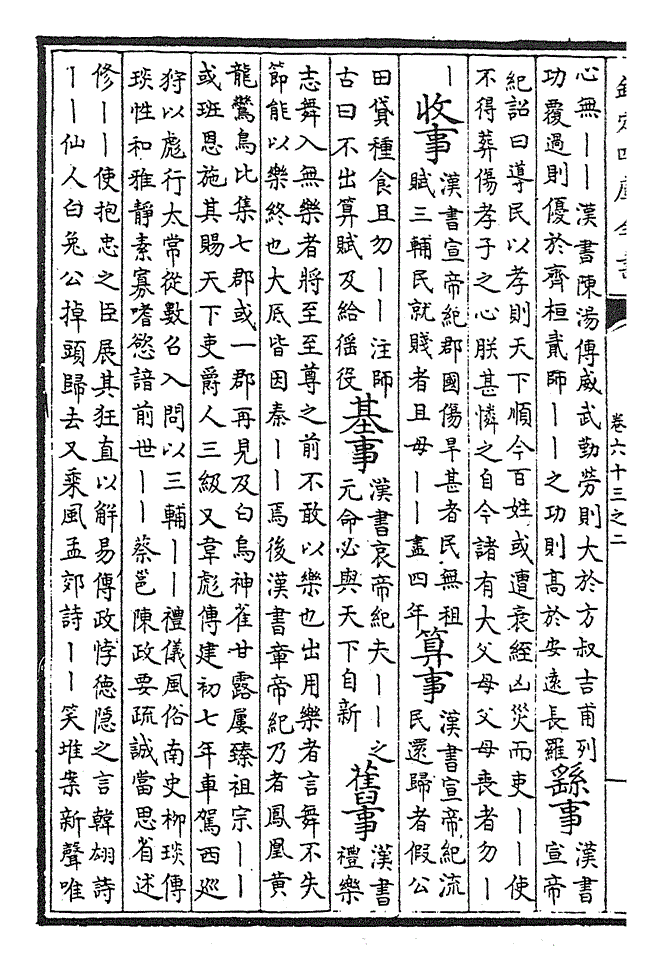 欽定四庫全書
卷六十三之二
心無——漢書陳湯傳威武勤勞則大於方叔吉甫列
功覆過則優於齊桓貳師——之功則高於安遠長羅
繇事
漢書
宣帝
紀詔曰導民以孝則天下順今百姓或遭衰絰凶災而吏——使
不得葬傷孝子之心朕甚憐之自今諸有大父母父母喪者勿—
—
收事
漢書宣帝紀郡國傷旱甚者民無租
賦三輔民就賤者且毋——盡四年
算事
漢書宣帝紀流
民還歸者假公
田貸種食且勿——注師
古曰不出算賦及給徭役
基事
漢書哀帝紀夫——之
元命必與天下自新
舊事
漢書
禮樂
志舞入無樂者將至至尊之前不敢以樂也出用樂者言舞不失
節能以樂終也大氐皆因秦——焉後漢書章帝紀乃者鳳凰黃
龍鸞鳥比集七郡或一郡再見及白烏神雀甘露屢臻祖宗——
或班恩施其賜天下吏爵人三級又韋彪傳建初七年車駕西巡
狩以彪行太常從數召入問以三輔——禮儀風俗南史柳琰傳
琰性和雅靜素寡嗜慾諳前世——蔡邕陳政要疏誠當思省述
修——使抱忠之臣展其狂直以解易傳政悖德隱之言韓翃詩
——仙人白兔公掉頭歸去又乘風孟郊詩——笑堆案新聲唯